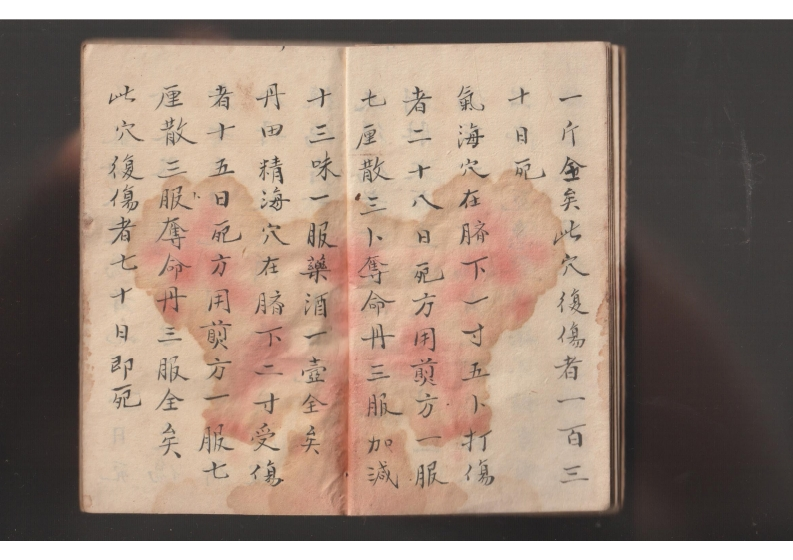 一斤全矣此穴復傷者一百三
十日死
氣海穴在臍下一寸五卜打傷
者二十八日死方用煎方一服
七厘散三卜奪命丹三服加減
十三味一服藥酒一壺全矣
丹田精海穴在臍下二寸受傷
者十五日死方用煎方一服七
厘散三服奪命丹三服全矣
此穴復傷者七十日即死